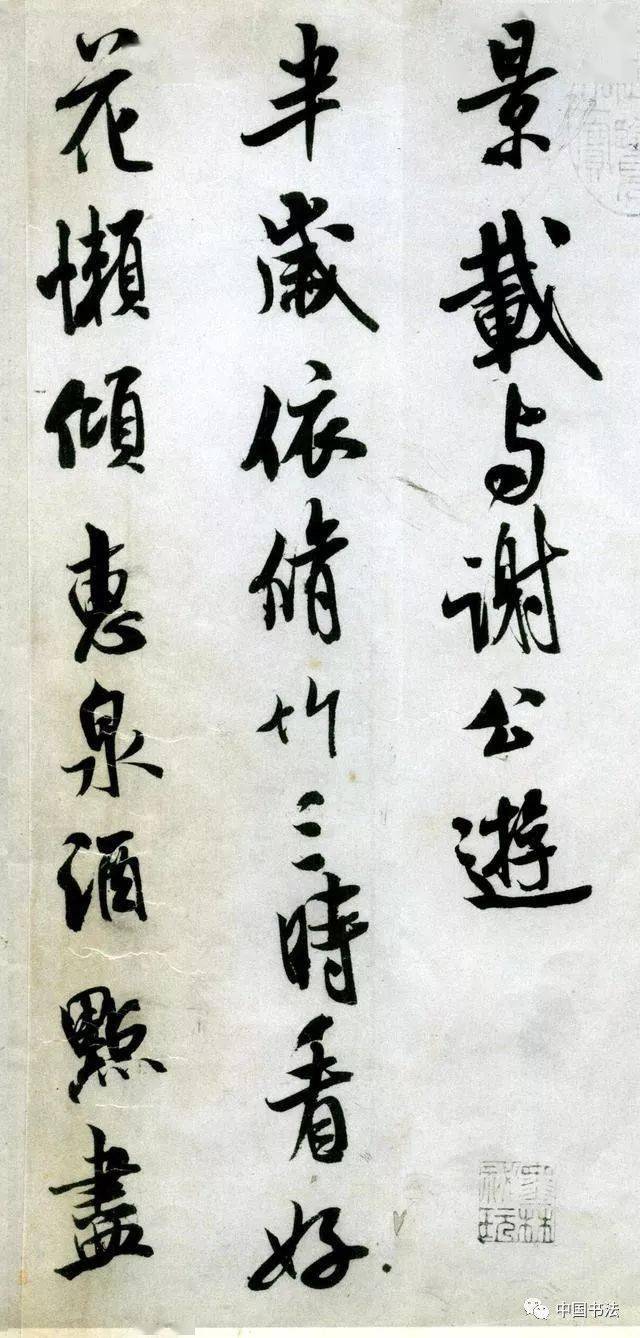 景載与謝公遊
半歲依脩竹三時看好
花懶傾惠泉酒點盡
中国书法